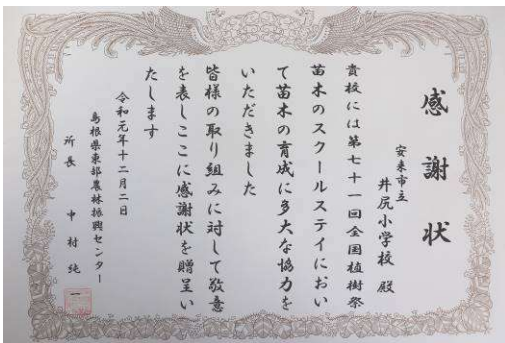 感謝状
安来市立
井尻小学校 殿
貴校には第七十一回全国植樹祭
苗木のスクールステイにおい
て苗木の育成に多大な協力を
いただきました
皆様の取り組みに対して敬意
を表しここに感謝状を贈呈い
たします
令和元年十二月二日
島根県東部農林振興センター
所長 中村 純